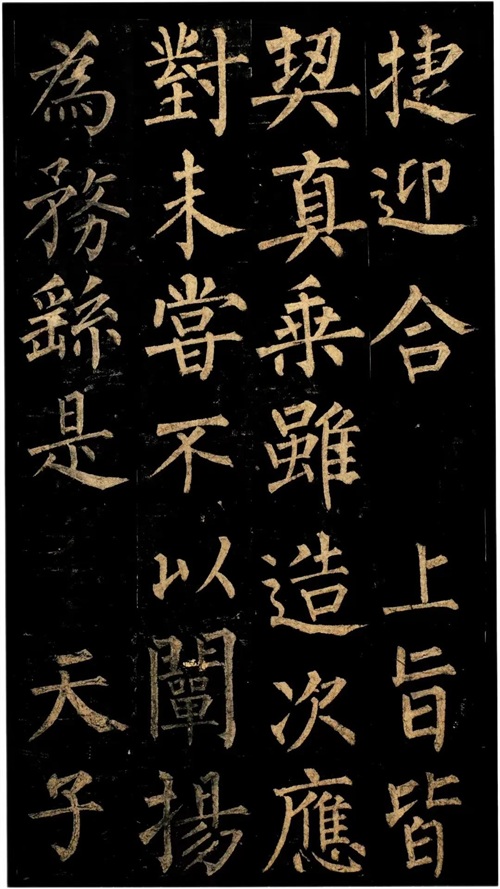 捷迎合 上旨皆
契真乗雖造次應
對未嘗不以闡揚
為務繇是 天子